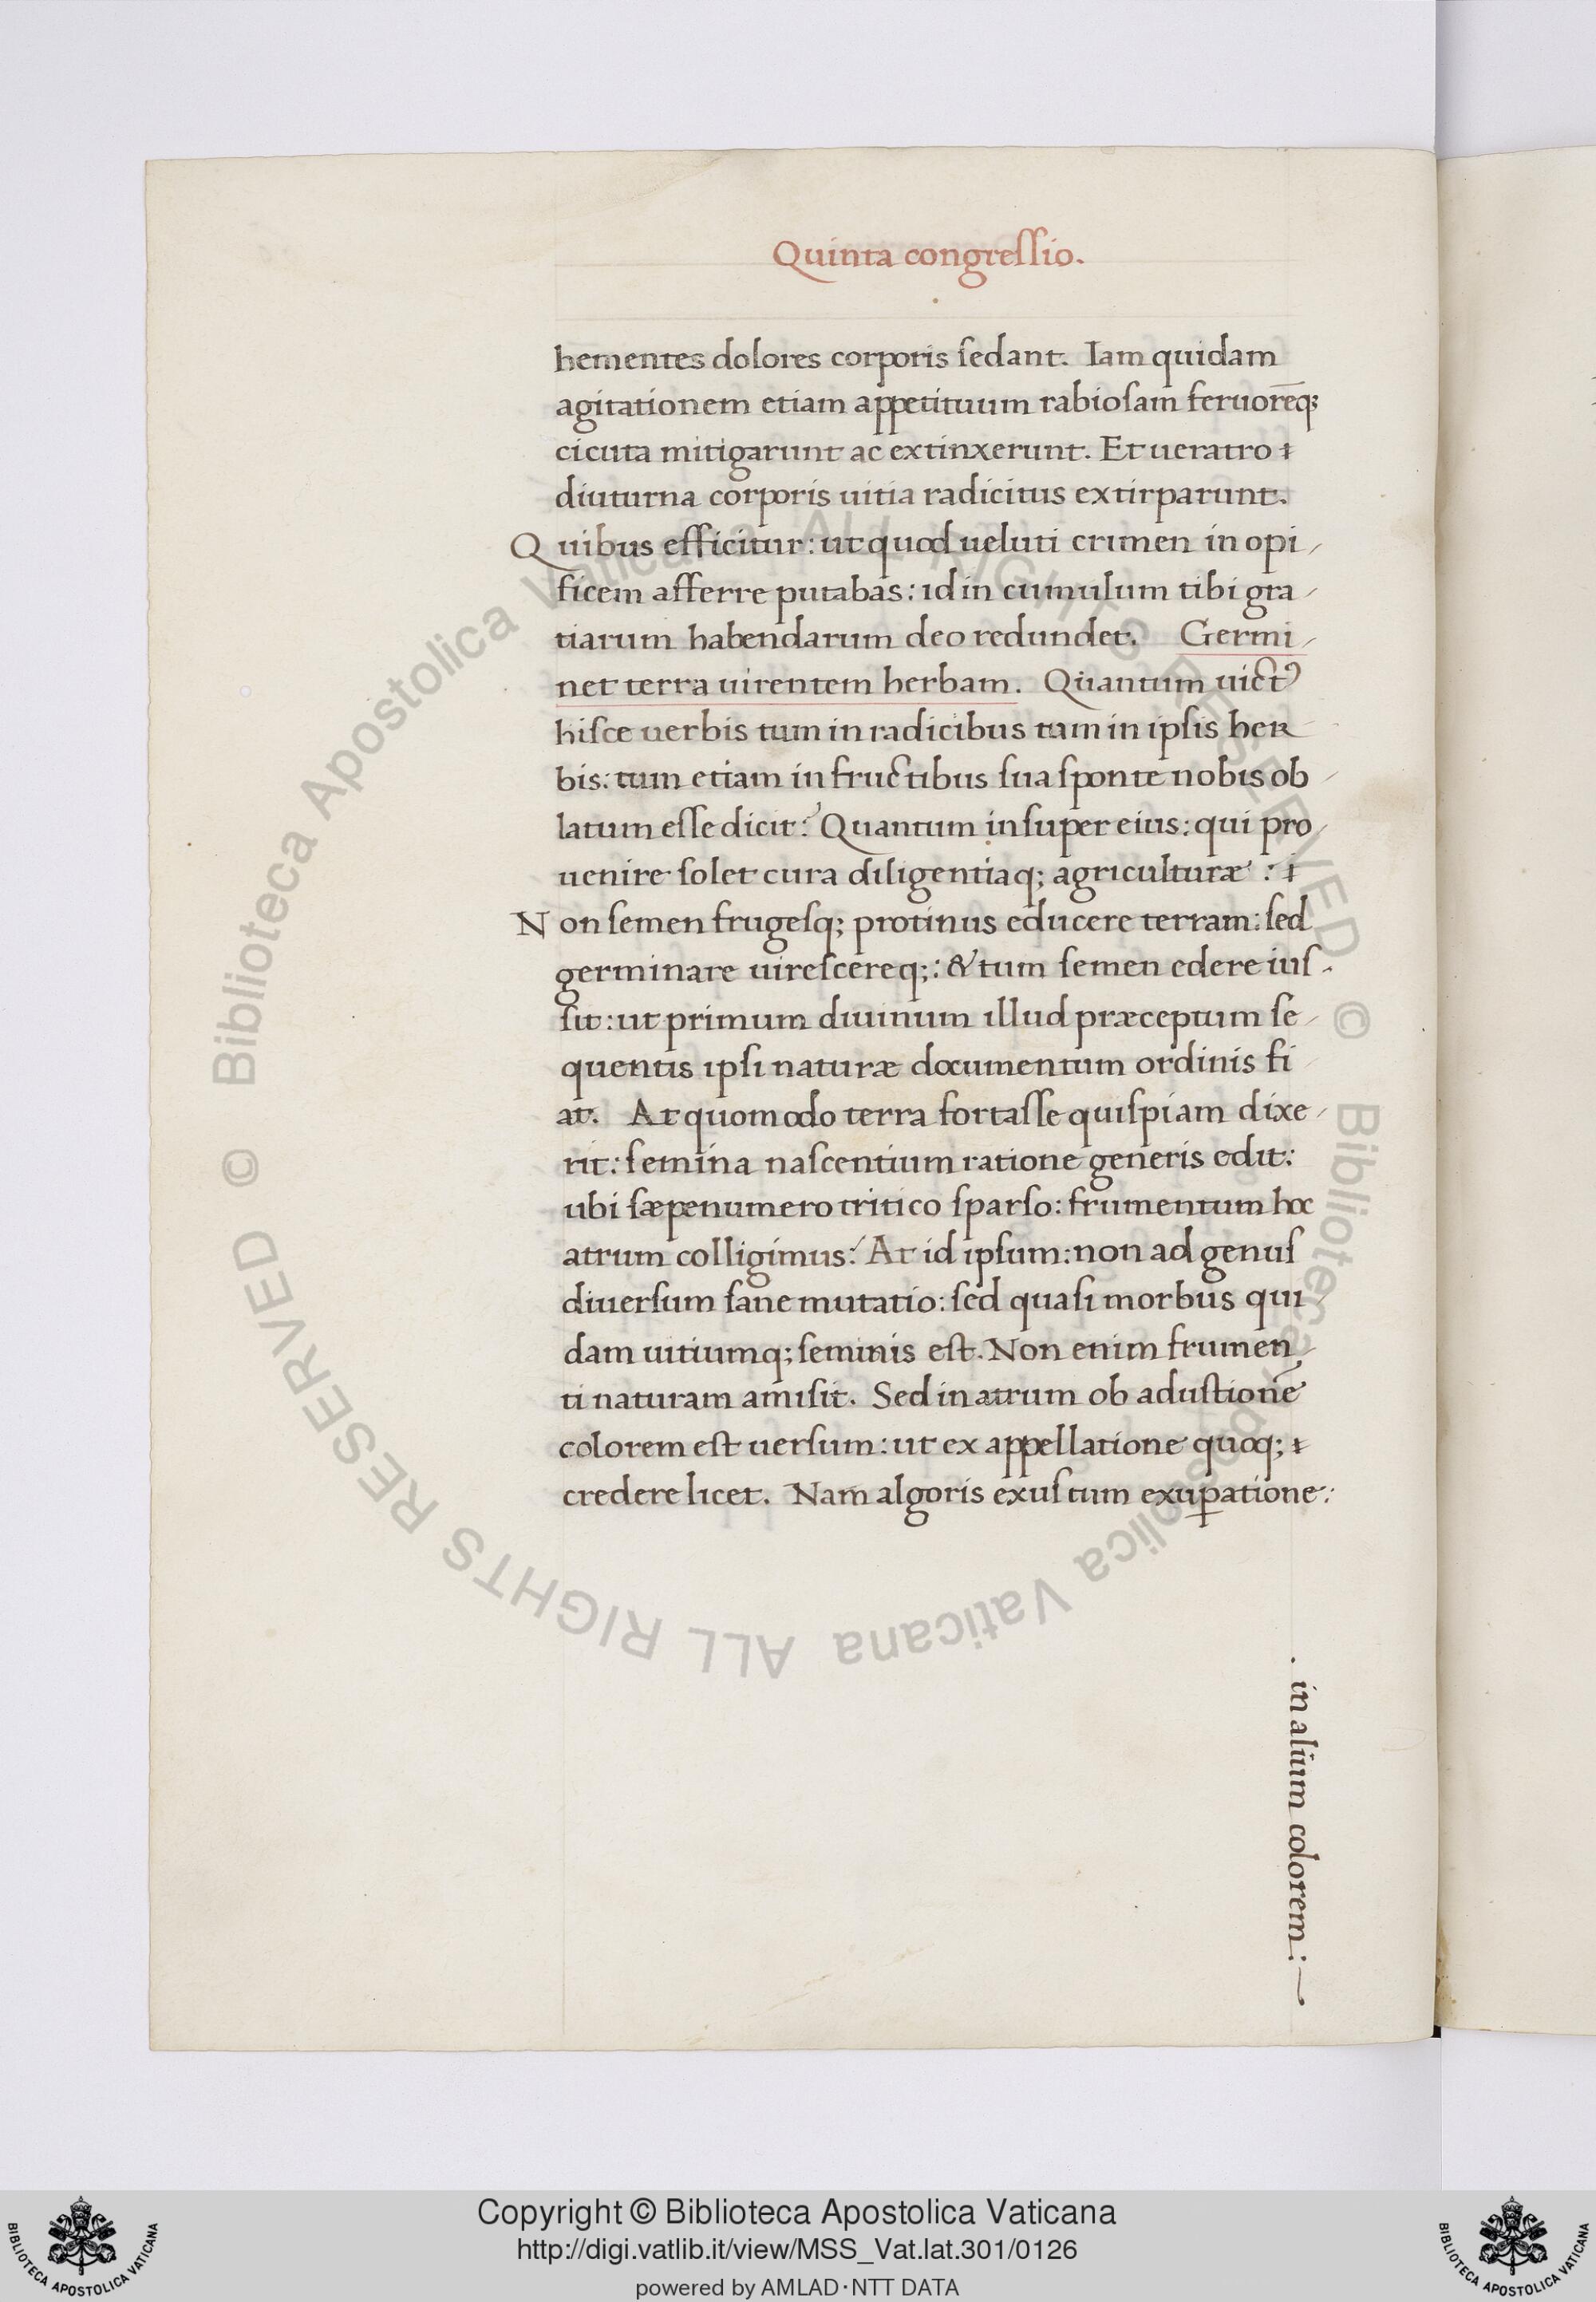 Quinta congreſſio.
hementes dolores corporis ſedant. Iam quidam
agitationem etiam appetituum rabioſam feruorēq;
cicuta mitigarunt ac extinxerunt. Et ueratro
diuturna corporis uitia radicitus extirparunt.
Quibus efficitur: ut quod ueluti crimen in opi
ficem afferre putabas: id in cumulum tibi gra
tiarum habendarum deo redundet. Germi
net terra uirentem herbam. Quantum uictꝰ
hiſce uerbis tum in radicibus tum in ipſis her
bis: tum etiam in fructibus ſua ſponte nobis ob
latum eſſe dicit? Quantum inſuper eius: qui pro
uenire ſolet cura diligentiaq; agriculturæ:
Non ſemen frugeſq; protinus educere terram: ſed
germinare uireſcereq;: & tum ſemen edere iuſ
ſit: ut primum diuinum illud præceptum ſe
quentis ipſi naturæ documentum ordinis fi
at. At quomodo terra fortaſſe quiſpiam dixe
rit: ſemina naſcentium ratione generis edit:
ubi ſæpenumero tritico ſparſo: frumentum hoc
atrum colligimus? At id ipſum: non ad genuſ
diuerſum ſane mutatio: ſed quaſi morbus qui
dam uitiumq; ſeminis eſt. Non enim frumen
ti naturam amiſit. Sed in atrum ob aduſtionē
colorem eſt uerſum: ut ex appellatione quoq;
credere licet. Nam algoris exuſtum exuꝑatione:
. in alium colorem:
© Biblioteca Apostolica Vaticana ALL RIGHTS RESERVED © Biblioteca Apostolica Vaticana ALL RIGHTS RESERVED
Copyright © Biblioteca Apostolica Vaticana
http://digi.vatlib.it/view/MSS_Vat.lat.301/0126
powered by AMLAD·NTT DATA
BIBLIOTECA APOSTOLICA VATICANA
BIBLIOTECA APOSTOLICA VATICANA